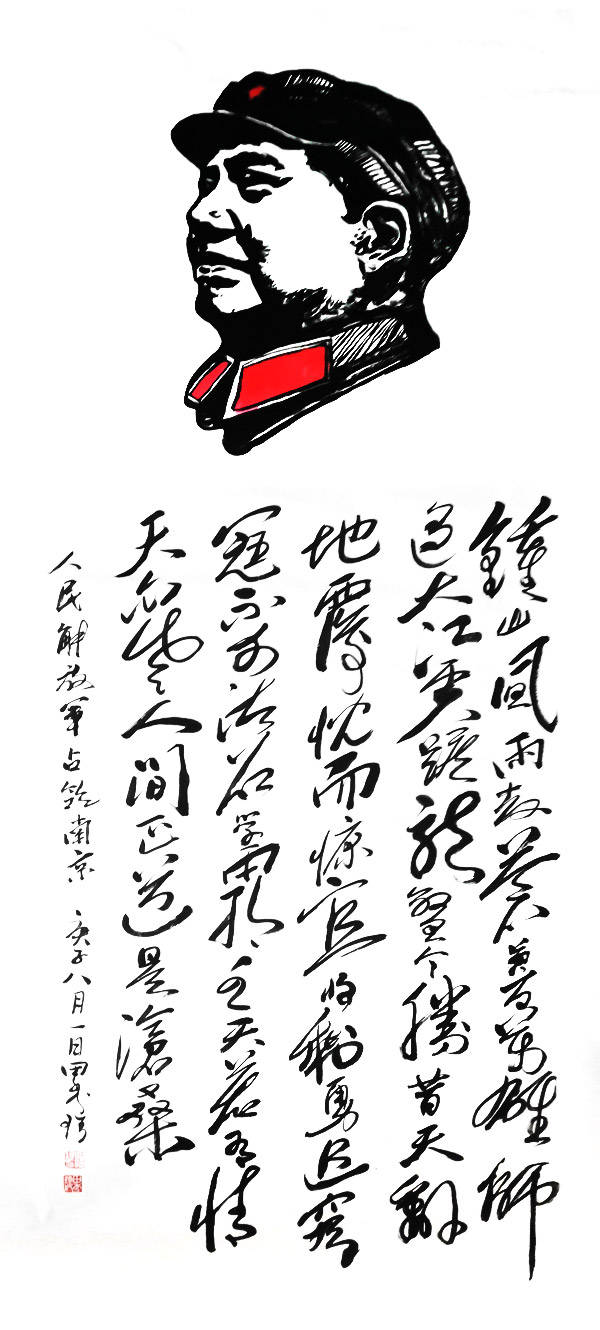 鍾山風雨起蒼黃百萬雄師
過大江虎踞龍盤今勝昔天翻
地覆慨而慷宜將剩勇追窮
寇不可沽名學霸王天若有情
天亦老人間正道是滄桑
人民解放軍占領南京 庚子八月一日田